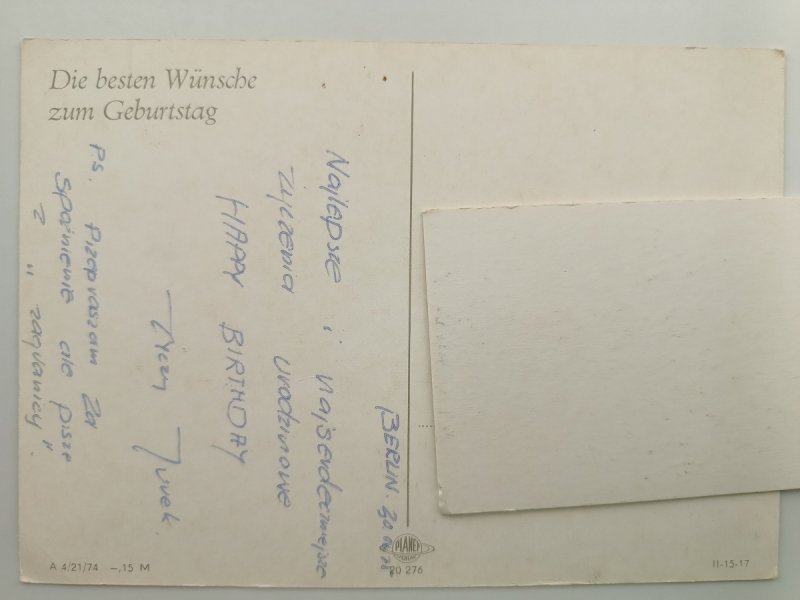 Die besten Wünsche
zum Geburtstag
BERLIN. 30.
Najlepsze i najserdeczniejsze
życzenia urodzinowe
HAPPY BIRTHDAY
Jurek.
PS. Przepraszam za
spóźnienie ale piszę
z "zagranicy"
PLANET
VERLAG
20 276
A 4/21/74 –,15 M
II-15-17